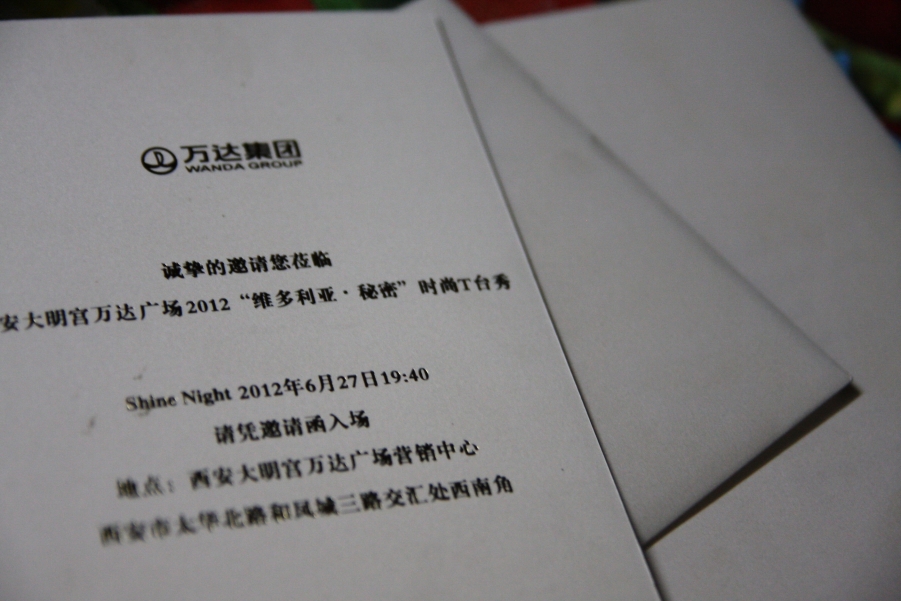 万达集团
WANDA GROUP
诚挚的邀请您莅临
安大明宫万达广场2012“维多利亚·秘密”时尚T台秀
Shine Night 2012年6月27日19:40
请凭邀请函入场
地点：西安大明宫万达广场营销中心
西安市太华北路和凤城三路交汇处西南角